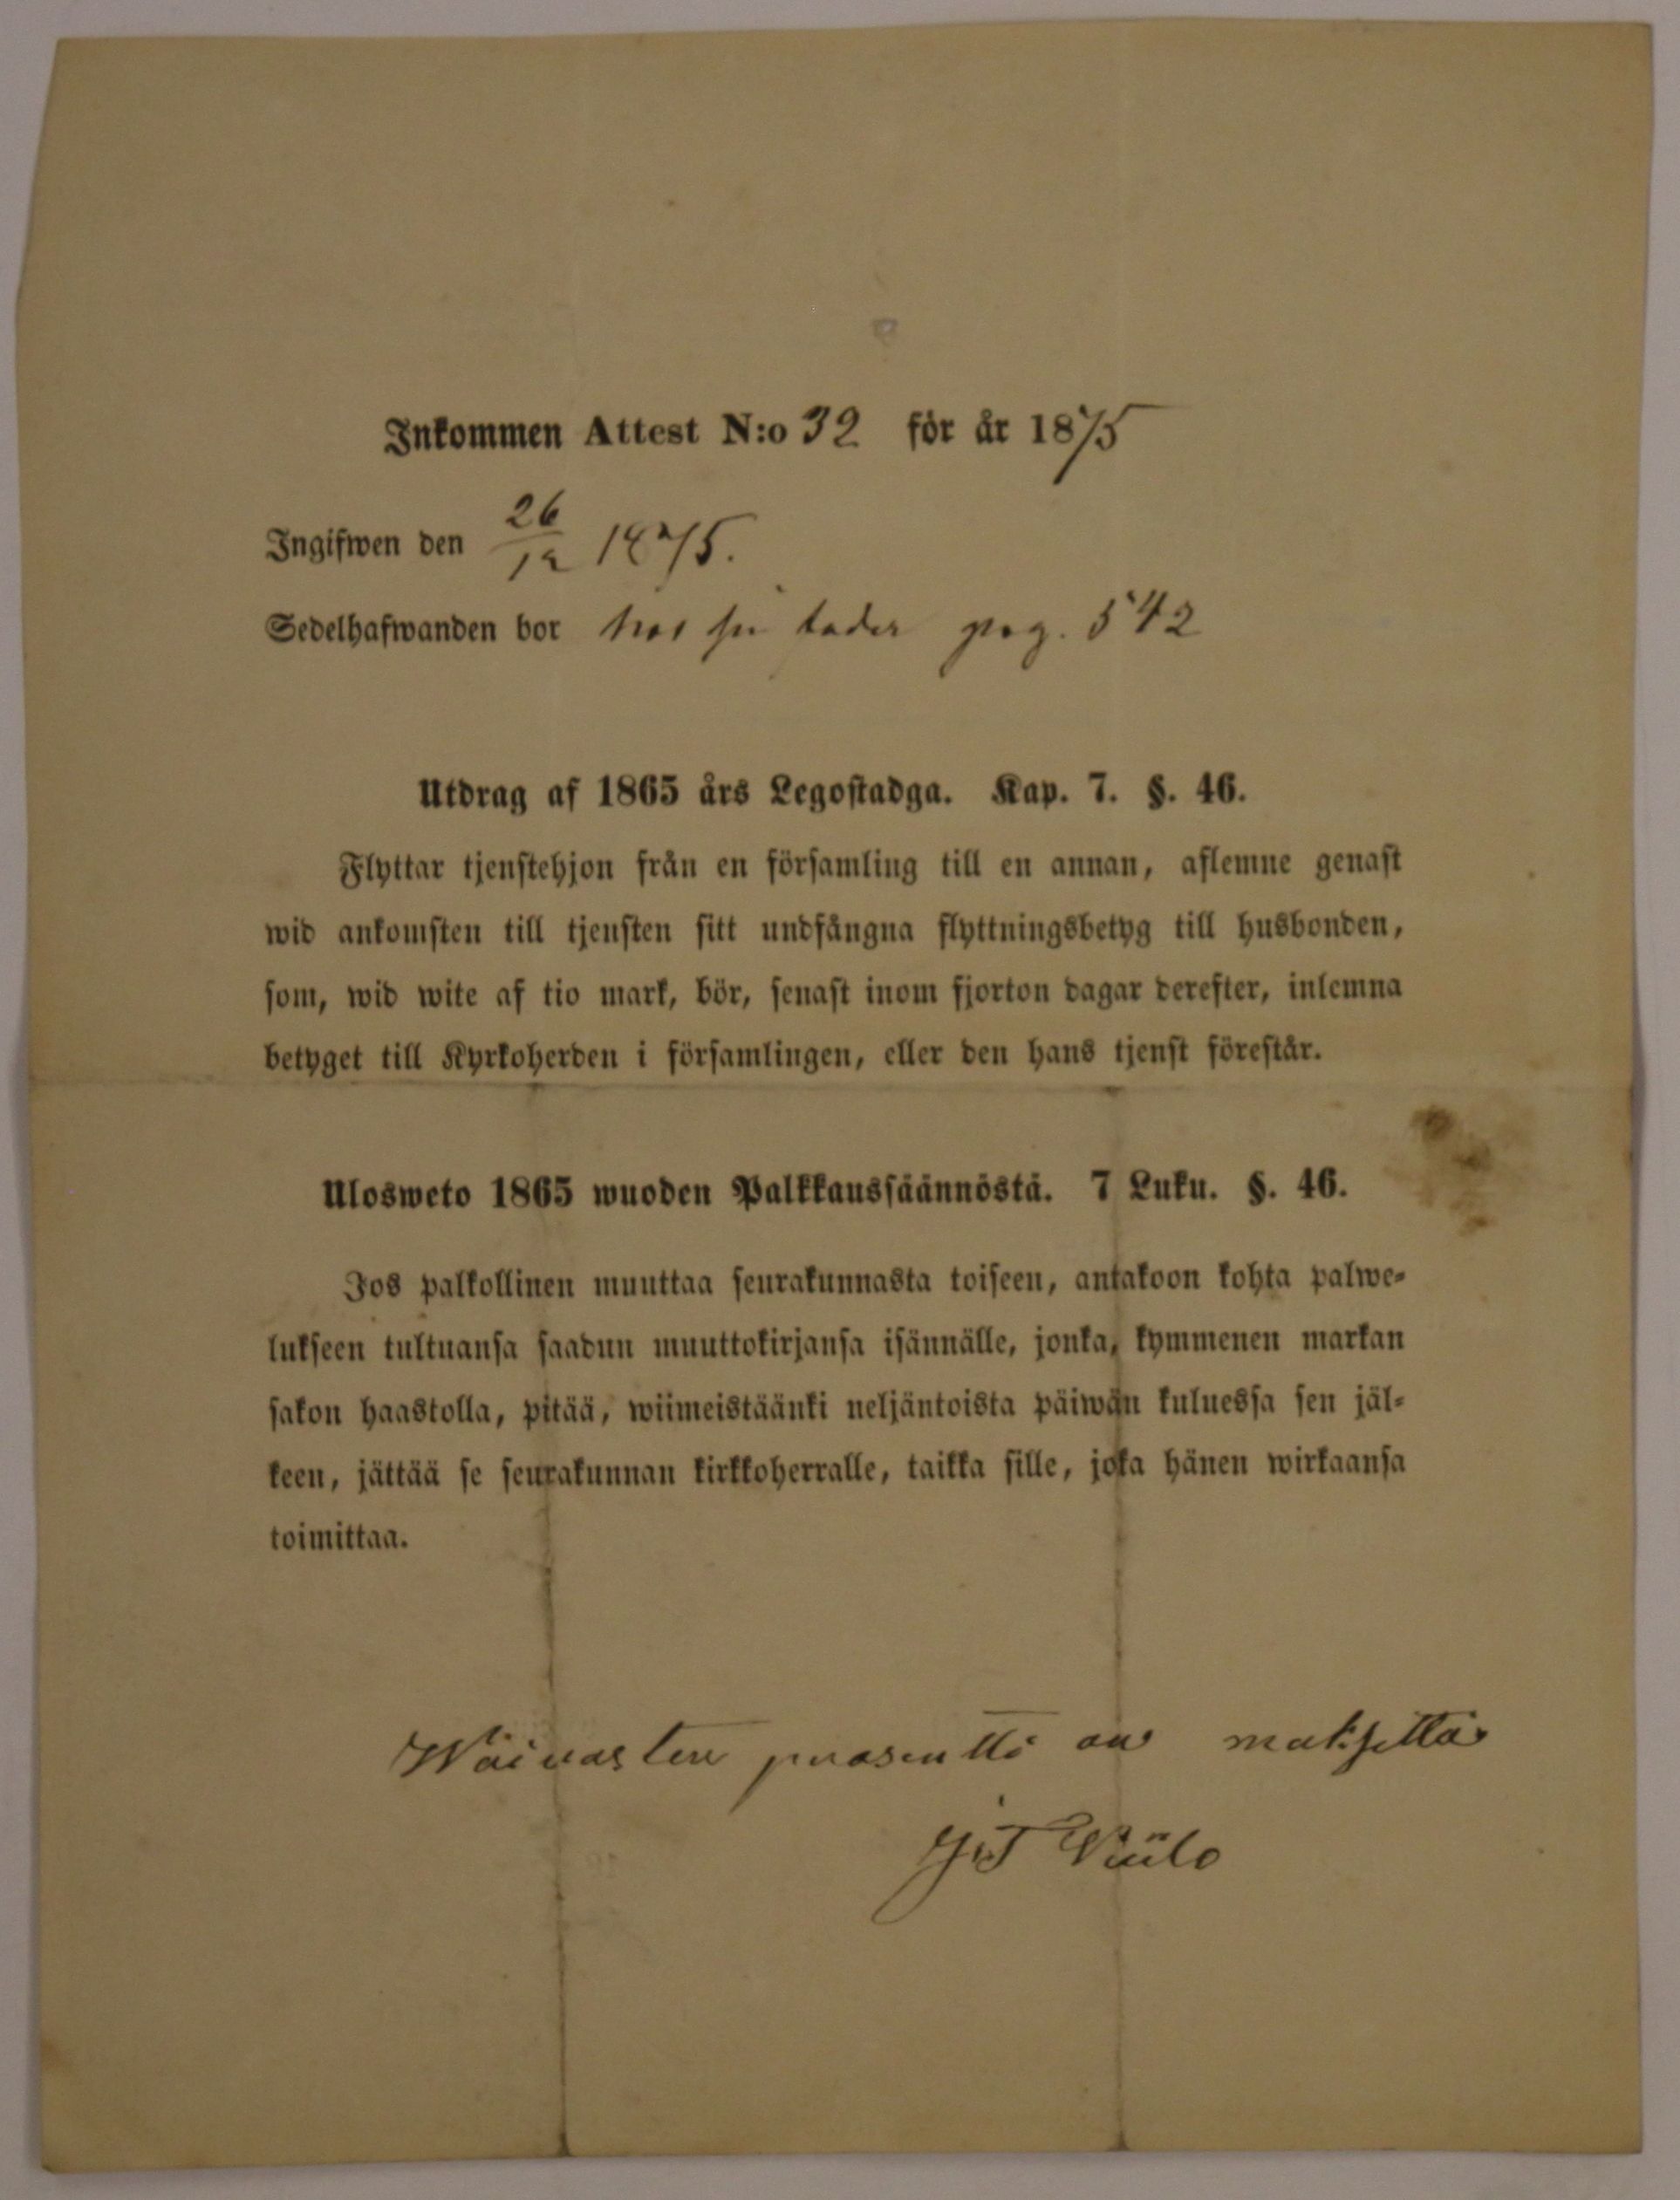 Inkommen Attest N:o 32 för år 1875
Ingifwen den 26/12 1875.
Sedelhafwanden bor hos sin fader pag. 542
Utdrag af 1865 års Legostadga. Kap. 7. §. 46.
Flyttar tjenstehjon från en församling till en annan, aflemne genast
wid ankomsten till tjensten sitt undfångna flyttningsbetyg till husbonden,
som, wid wite af tio mark, bör, senast inom fjorton dagar derefter, inlemna
betyget till Kyrkoherden i församlingen, eller den hans tjenst förestår.
Ulosweto 1865 wuoden Palkkaussäännöstä. 7 Luku. §. 46.
Jos palkollinen muuttaa seurakunnasta toiseen, antakoon kohta palwe-
lukseen tultuansa saadun muuttokirjansa isännälle, jonka, kymmenen markan
sakon haastolla, pitää, wiimeistäänki neljäntoista päiwän kuluessa sen jäl-
keen, jättää se seurakunnan kirkkoherralle, taikka sille, joka hänen wirkaansa
toimittaa.
Waivasten prosentti on maksettu